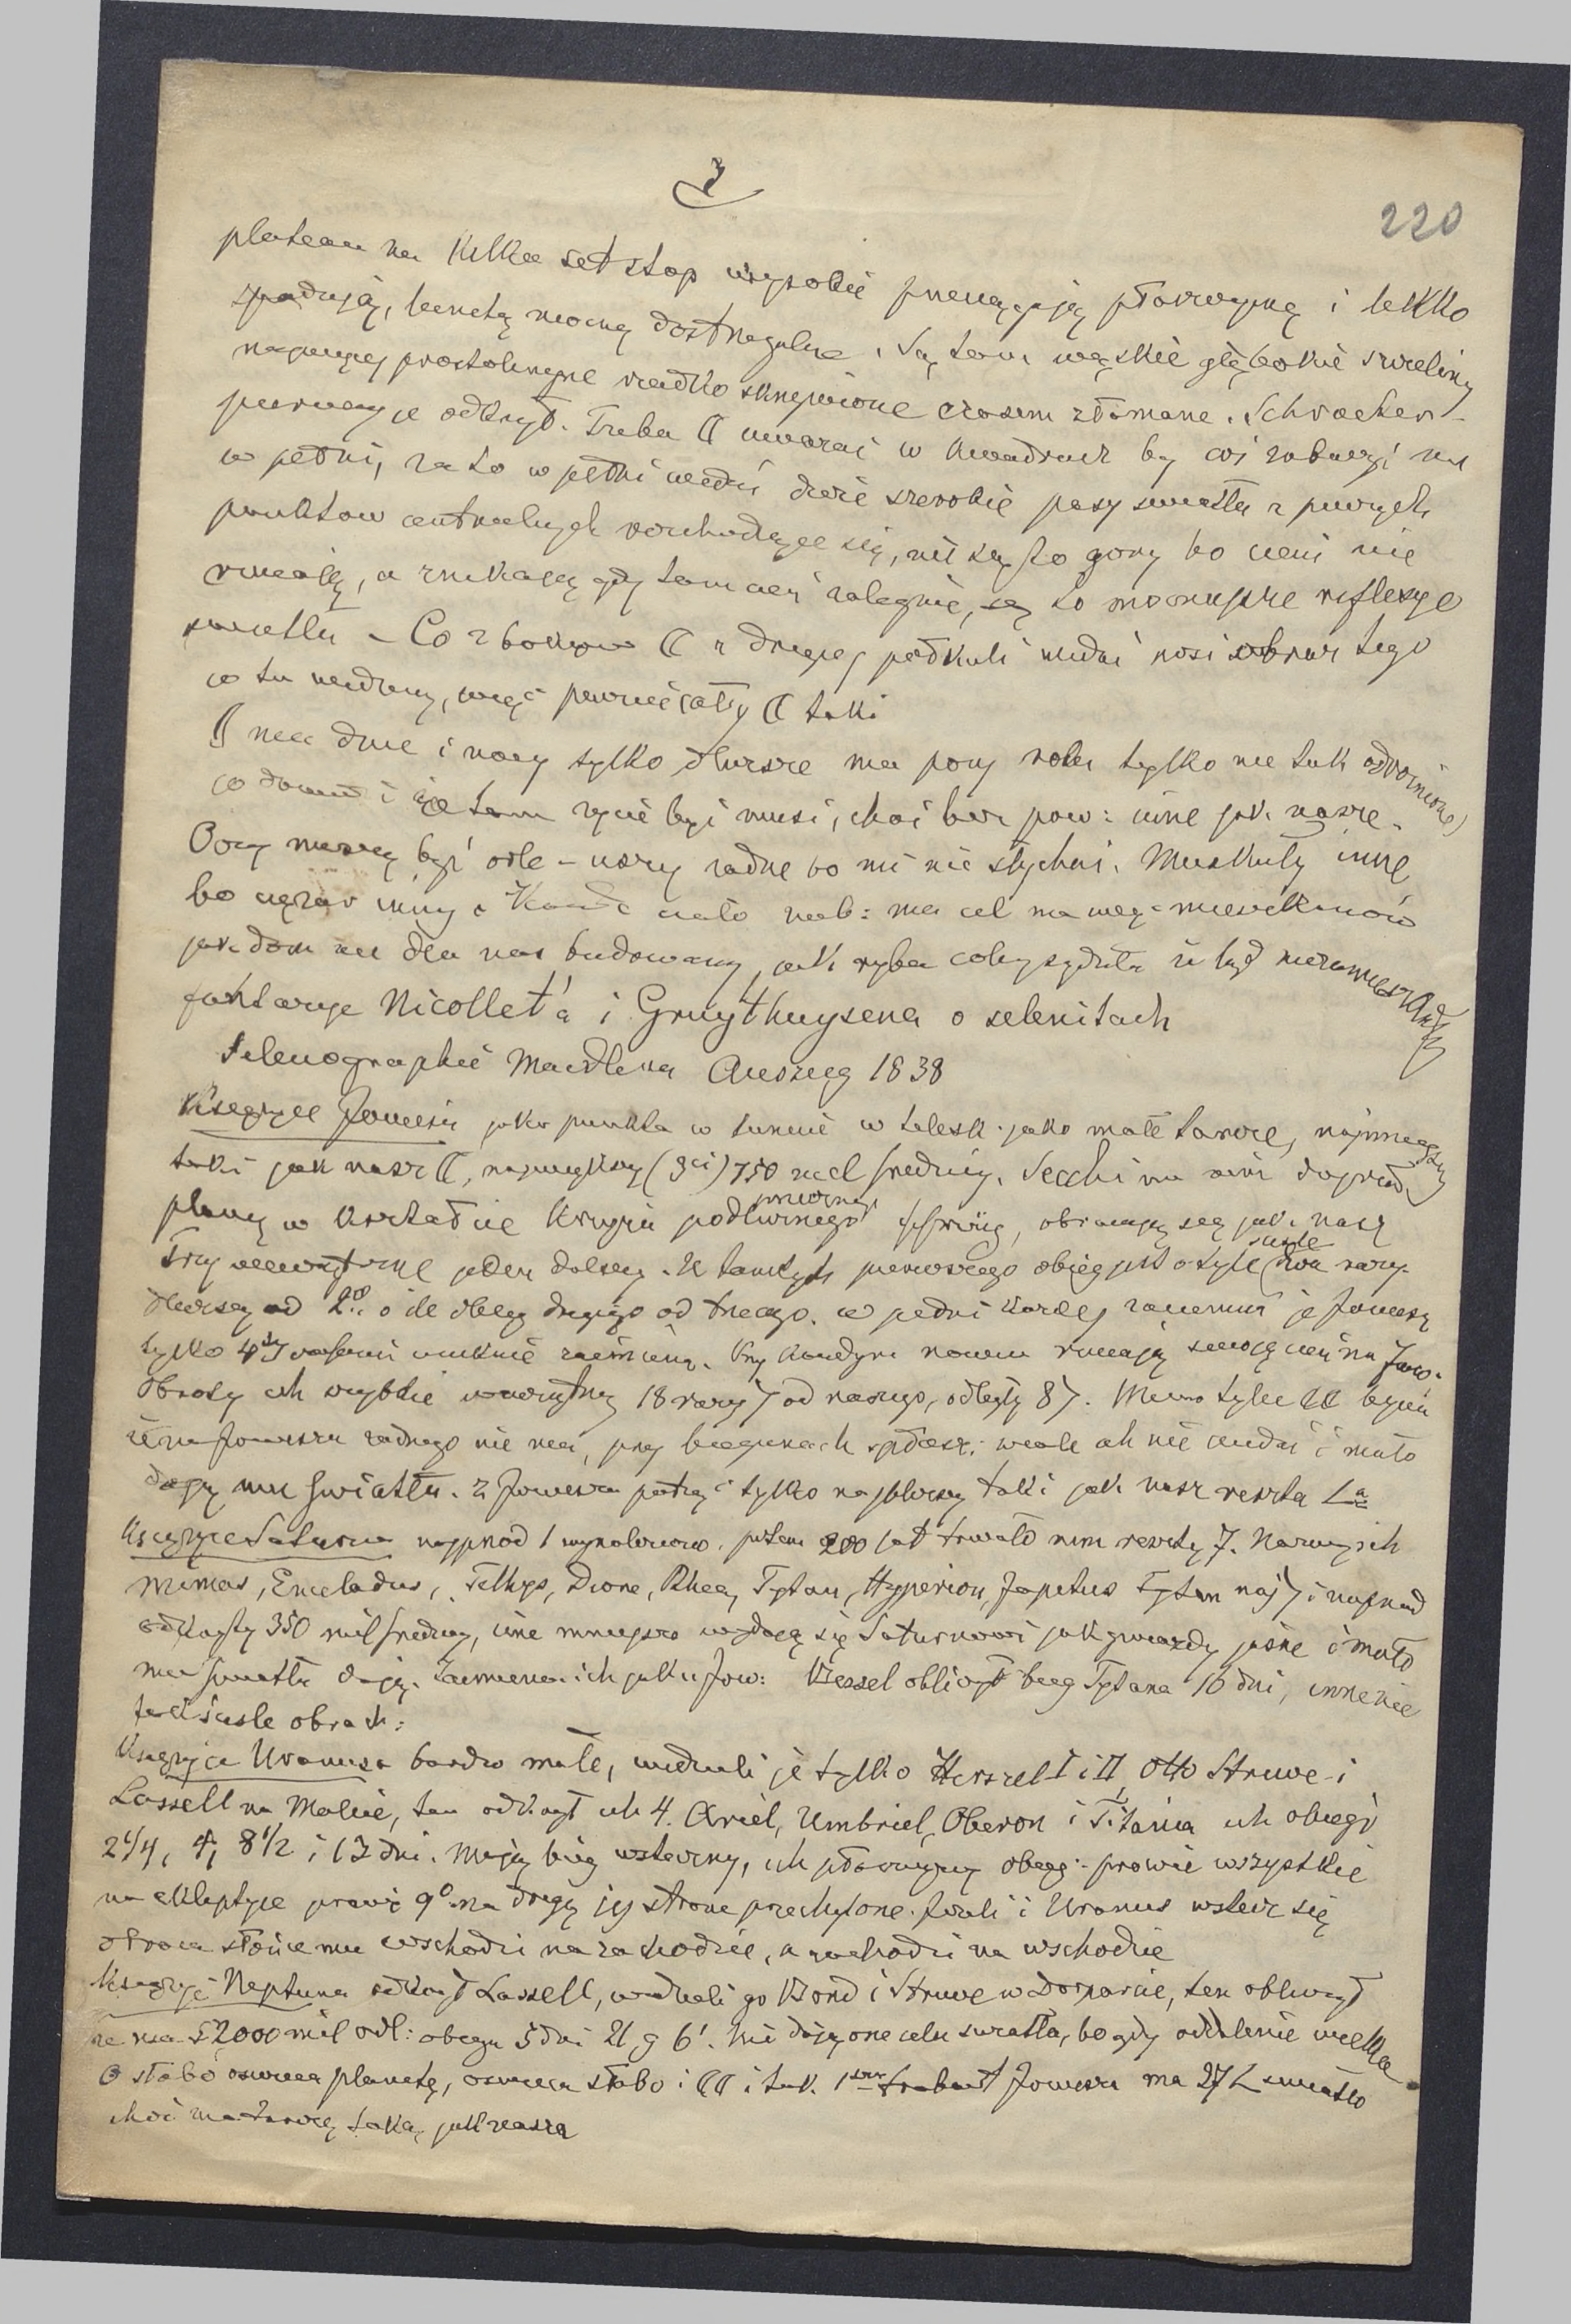 3
220
plateau na kilka set stop wysokie przeciągają płaszczyznę i lekko
spadują, lunetą mocną dostrzegalne. Są tam wąskie głębokie szczeliny
najwięcej prostolinijne rzadko skrzywione czasem złamane. Schroeter
pierwszy je odkrył. Trzeba ☾ uważać w kwadrach by coś zobaczyć nie
w pełni, za to w pełni widać duże szerokie pasy światła z pewnych
punktów centralnych rozchodzące się, nie są to góry bo cieni nie
rzucają, a znikają gdy tam cień zalegnie, są to mocniejsze refleksye
światła – Co z boków ☾ z drugiej półkuli widać nosi obraz tego
co tu widzimy, więc pewnie cały ☾ taki
☾ ma dnie i nocy tylko dłuższe ma pory roku tylko nie tak odróżnione
co dowód i że tam życie być musi, choć bez pow: inne jak nasze.
Oczy muszą być orle – uszy żadne bo nic nie słychać. Muskuły inne
bo ciężar inny. Każde ciało nieb: ma cel ma więc mieszkańców
jak dom nie dla nas budowany, jak ryba coby sądziła że ląd niezamieszkały
fantazye Nicollet'a i Gruythuysena o selenitach
Selenographie Maedlera Auszug 1838
Księżyce Jowisza jako punkta w lunecie w telesk. jako małe tarcze, najmniejszy
taki jak nasz ☾, największy (3ci) 750 mil średnicy. Secchi na nim dojrzał
plamy w kształcie krzyża podłużnego, obracają się jak nasz
Trzy wewnętrzne jeden dalszy. U tamtych pierwszego obieg jest o tyle ściśle dwa razy
dłuższy od 2go o ile obieg drugiego od trzeciego. w pełni każdej zaciemnia je Jowisz
tylko 4ty czasami uniknie zaćmienia. Przy każdym nowiu rzucają swoją cień na Jow.
Obroty ich szybkie wewnętrzny 18 razy > od naszego, odległy 8>. Mimo tylu ☾☾
że na Jowiszu żadnego nie ma, przy biegunach spłaszcz: wcale ich nie widać i mało
dają mu światła. Z Jowisza patrząc tylko najbliższy taki jak nasz reszta
Księżyce Saturna najprzód 1 wynaleziono. potem 200 lat trwało nim resztę 7. Nazwy ich
Mimas, Enceladus, Tethys, Dione, Rhea, Tytan, Hyperion, Japetus Tytan naj> i najprzód
odkryty 350 mil średnicy, inne mniejsze wydają się Saturnowi jak gwiazdy jasne i mało
mu światła dają. Zaćmienia ich jak u Jow: Bessel obliczył bieg Tytana 16 dni, inne nie
tak ściśle obrach:
Księżyce Uranusa bardzo małe, widzieli je tylko Herszel I i II, Otto Struve i
Lassell na Malcie, ten odkrył ich 4. Ariel, Umbriel, Oberon i Titania ich obiegi
2 1/4, 4, 8 1/2 i 13 dni. Mają bieg wsteczny, ich płaszczyzny obieg: prawie wszystkie
na ekliptyce prawie 9° na drugą jej stronę przechylone. Jeżeli i Uranus wstecz się
obraca słońce mu wschodzi na zachodzie, a zachodzi na wschodzie
Księżyc Neptuna odkrył Lassell, widzieli go Bond i Struve w Dorpacie, ten obliczył
że ma 52000 mil odl: obiegu 5 dni 21 g 6'. Nie dają one celu światła, bo gdy oddalenie wielkie
☉ słabo oświeca planetę, oświeca słabo i ☾☾ i tak 1szy trabant Jowisza ma 27 L światło
choć ma tarczę taką jak nasza